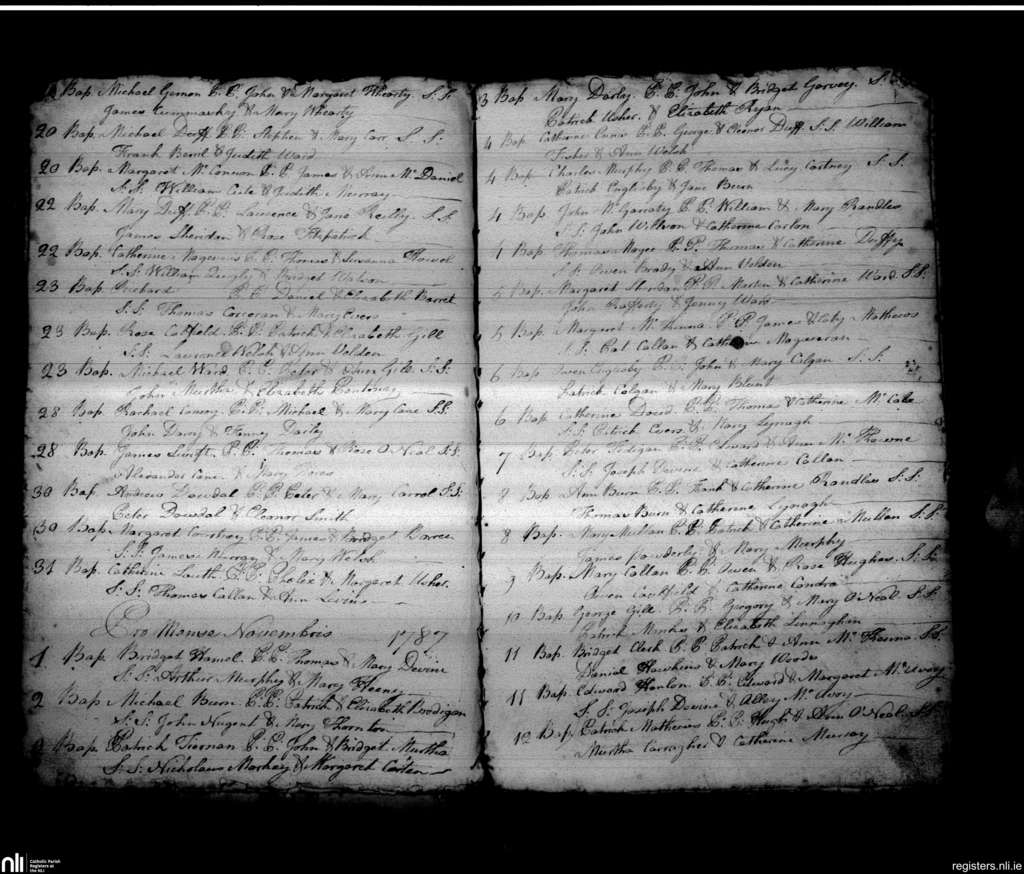 Bap. Michael Gernon P.P. John & Margaret Whearty. S.S.
James & Mary Whearty
20 Bap. Michael Duff P.P. Stephen & Mary Carr. S.S.
Frank & Judith Ward
20 Bap. Margaret Mc Connon P.P. James & Anne Mc Daniel
S.S. William & Judith Murray
22 Bap. Mary Duff. P.P. Laurence & Jane Reilly. S.S.
James Sheridan & Rose Fitzpatrick
22 Bap. Catherine P.P. Thomas & Susanna
S.S. William Quigly & Bridget Watson
23 Bap. Richard P.P. Daniel & Elizabeth Barret
S.S. Thomas Corcoran & Mary Evers
23 Bap. Rose P.P. Patrick & Elizabeth Gill
S.S. Laurence Welsh & Ann Veldon
23 Bap. Michael Ward P.P. Peter & Ann Gill. S.S.
John Murtha & Elizabeth
28 Bap. Rachael P.P. Michael & Mary Cane S.S.
John & Fanney Daily
28 Bap. James Swift. P.P. Thomas & Rose O Neal S.S.
Alexander Cane & Mary
30 Bap. Andrew Dowdal P.P. Peter & Mary Carrol S.S.
Peter Dowdal & Eleanor Smith
30 Bap. Margaret Courtney P.P. James & Bridget
S.S. James Murray & Mary Welsh
31 Bap. Catherine Louth. P.P. & Margaret Usher.
S.S. Thomas Callan & Ann Levins
Pro Mense Novembris 1787
1 Bap. Bridget Hamel. P.P. Thomas & Mary Devine
S.S. Arthur Murphy & Mary Heeney
2 Bap. Michael Burn. P.P. Patrick & Elizabeth Brodigan
S.S. John Nugent & Mary Thornton
Bap. Patrick Tiernan P.P. John & Bridget Murtha
S.S. Nicholaus Markey & Margaret Carten
3 Bap. Mary Darly. P.P. John & Bridget Garvey. S.S.
Patrick Usher. & Elizabeth Ryan
4 Bap. Catherine P.P. George & Eleanor Duff. S.S. William
Fisher & Ann Welsh
4 Bap. Charles Murphy P.P. Thomas & Lucy Cartney S.S.
Patrick Englesby & Jane Burn
4 Bap. John Mc Garraty P.P. William & Mary Randles
S.S. John & Catherine Carton
Bap. Thomas Magee P.P. Thomas & Catherine Duffy
S.S. Owen Brady & Ann Veldon
5 Bap. Margaret P.P. Martin & Catherine Ward S.S.
John Rafferty & Jenny Ward
5 Bap. Margaret Mc Kenna. P.P. James & Mathews
S.S. Pat Callan & Catherine
6 Bap. Owen Englesby P.P. John & Mary Colgan S.S.
Patrick Colgan & Mary Blunt
6 Bap. Catherine Dowd. P.P. Thomas & Catherine Mc Cabe
S.S. Patrick Evers & Mary Lynagh
7 Bap. Peter P.P. Edward & Ann Mc
S.S. Joseph Devine & Catherine Callan
8 Bap. Ann Burn P.P. Frank & Catherine Randles S.S.
Thomas Burn & Catherine Lynagh
8 Bap. Mary Mullan P.P. Patrick & Catherine Mullan S.S.
James Powderly & Mary Murphy
9 Bap. Mary Callan P.P. Owen & Rose Hughes S.S.
Owen & Catherine Condra
10 Bap. George Gill P.P. Gregory & Mary O Neal S.S.
Patrick & Elizabeth Linnaghan
11 Bap. Bridget Clark P.P. Patrick & Ann Mc S.S.
Daniel Hawkins & Mary Woods
11 Bap. Edward Hanlon P.P. Edward & Margaret Mc Evoy
S.S. Joseph Devine & Alley Mc Evoy
12 Bap. Patrick Mathews P.P. Hugh & Ann O Neal. S.S.
Murtha Carragher & Catherine Murray
nli Catholic Parish
Registers at
the NLI
registers.nli.ie